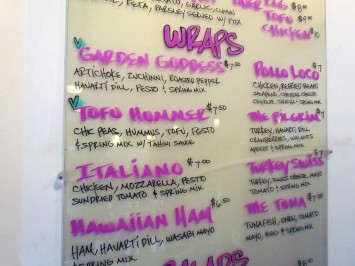 GARLIC, CUMIN
FETA, PARSLEY SERVED W/ PITA
TOFU
CHICKEN $10
WRAPS
GARDEN GODDESS $7.50
ARTICHOKE, ZUCHINNI, ROASTED PEPPER
HAVARTI DILL, PESTO & SPRING MIX
TOFU HUMMER $7.50
CHIC PEAS, HUMMUS, TOFU, PESTO
& SPRING MIX W/ TAHINI SAUCE
ITALIANO $7.00
CHICKEN, MOZZARELLA, PESTO
SUNDRIED TOMATO & SPRING MIX
HAWAIIAN HAM $6.50
HAM, HAVARTI DILL, WASABI MAYO
& SPRING MIX
POLLO LOCO $7
CHICKEN, REFRIED BEANS
JALAPENO, CHEDDAR CHEESE
& SPRING MIX
THE PILGRIM $7
TURKEY, HAVARTI DILL
CRANBERRIES, WALNUTS
APRICOT & SPRING MIX
TURKEY SWISS
TURKEY, SWISS CHEESE, MAYO
TOMATO & SPRING MIX
THE TUNA $7
TUNAFISH, ONION, TOMATO
MAYO, EGG & SPRING MIX